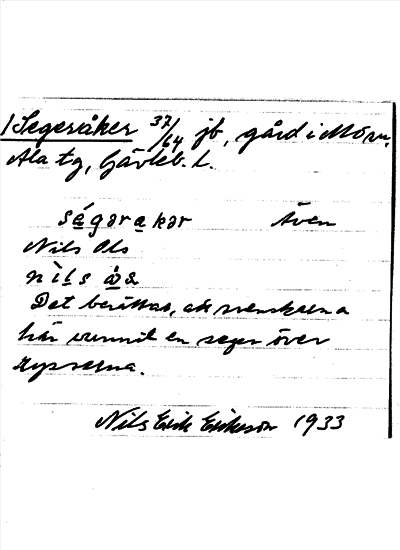 1 Segersåker 37/64 jb, gård i Mo sn,
Ala tg, Gävleb. L.
sägərakər Även
Nils Ols
nìls ås
Det berättas, att svenskarna
här vunnit en seger över
ryssarna.
Nils Erik Eriksson 1933